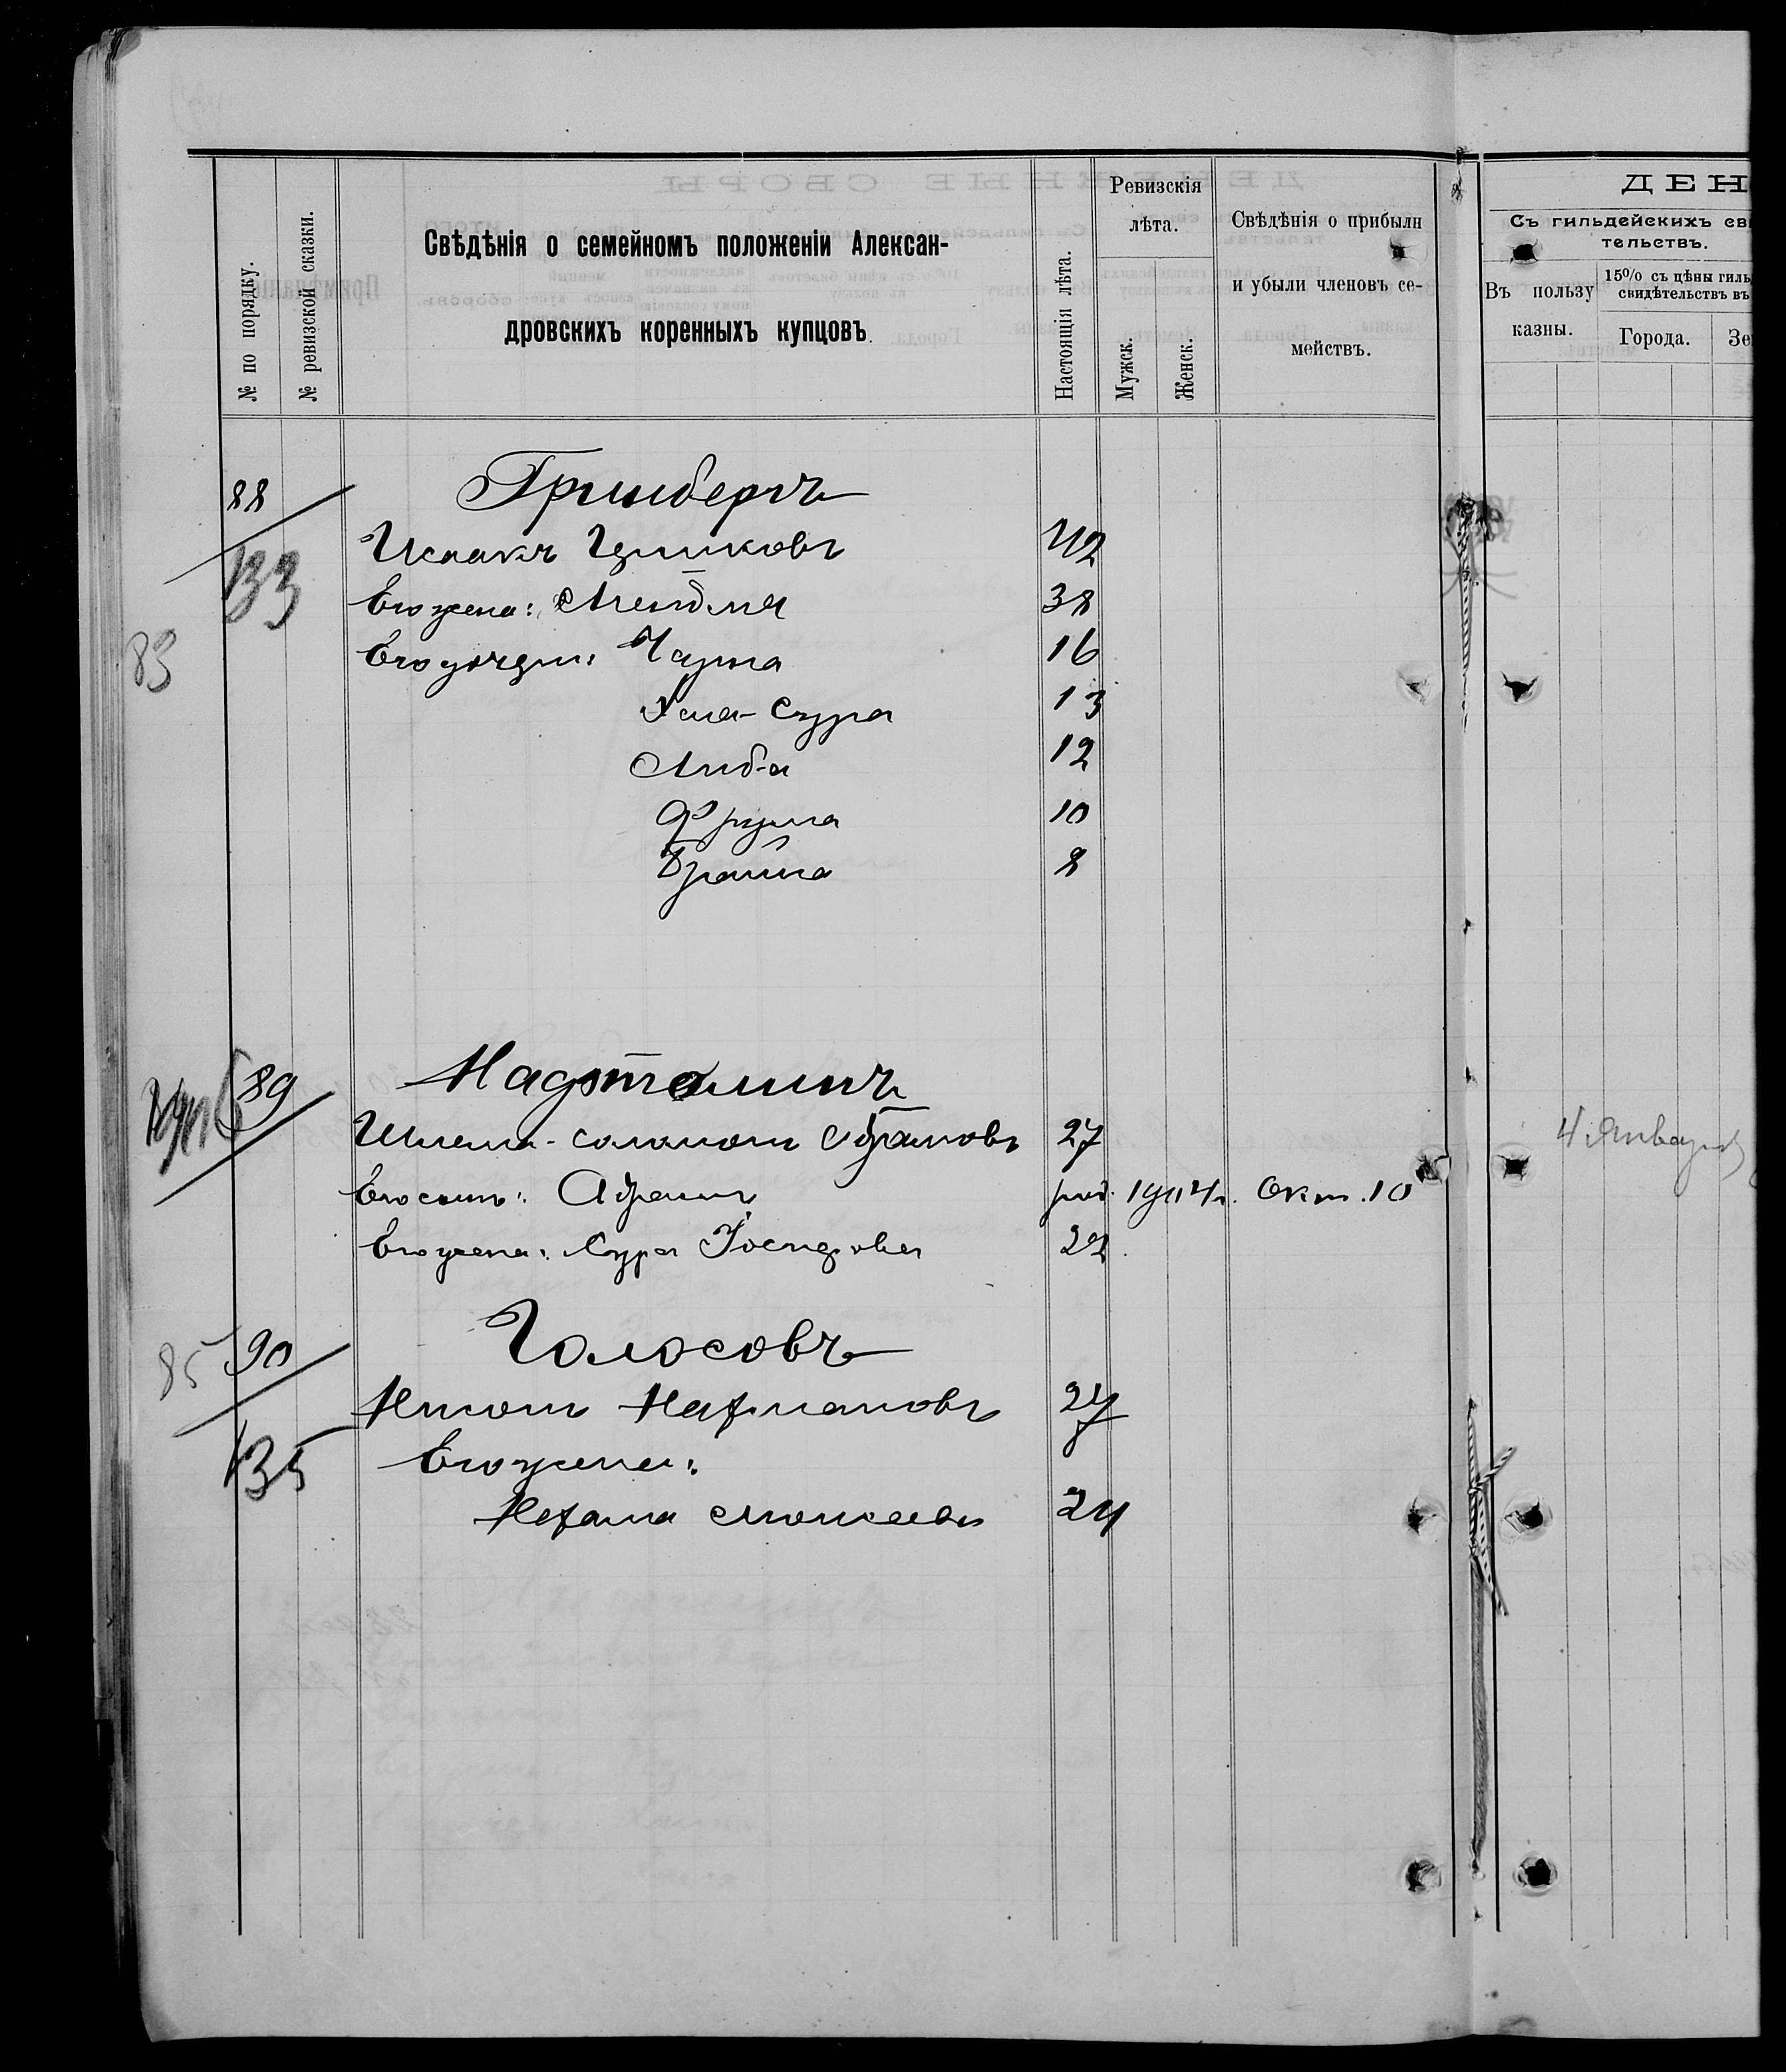 № по порядку.
№ ревизской сказки.
Свѣдѣнія о семейномъ положеніи Алексан-
дровскихъ коренныхъ купцовъ
Настоящія лѣта.
Ревизскія
лѣта.
Мужск.
Женск.
Свѣдѣнія о прибыли
и убыли членовъ се-
мействъ.
ДЕН
Съ гильдейскихъ сви
тельствъ.
Въ пользу
казны.
15% съ цѣны гиль
свидѣтельствъ въ
Города.
Зе
88 Гринбергъ
133
Исаакъ Ициковъ 42
Его жена: 38
83
Его дочери: 16
Хая-Сура 13
Либа 12
Фрума 10
Брайна 8
89 Нафталинъ
Шлема-Соломонъ Абрамовъ 27
Его сынъ: Абрамъ род. 1904 г. Окт. 10
Его жена: Сура Іосифова 22
4 Января
85 90 Голосовъ
135
Нисонъ Нахмановъ 27
Его жена:
Нехама Моисеева 24